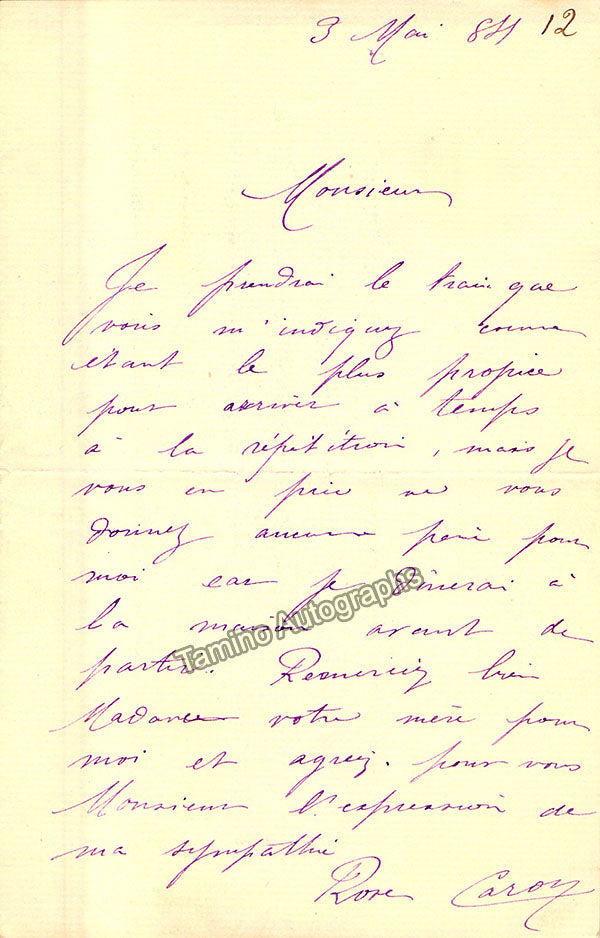 3 Mai 84 12
Monsieur
Je prendrai le train que
vous m'indiquez comme
étant le plus propice
pour arriver à temps
à la répétition, mais je
vous en prie ne vous
donnez aucune peine pour
moi car je dînerai à
la maison avant de
partir. Remerciez bien
Madame votre mère pour
moi et agréez. pour vous
Monsieur l'expression de
ma sympathie
Rose Caron
Tamino Autographs